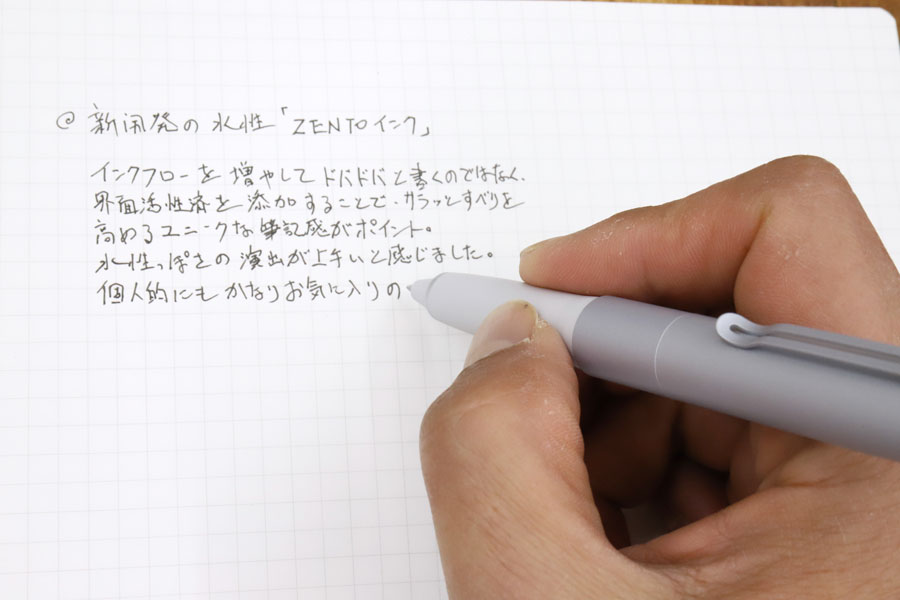 @ 新開発の水性「ZENTOインク」
インクフローを増やしてドバドバと書くのではなく、
界面活性済を添加することで、サラッとすべりを
高めるユニークな筆記感がポイント。
水性っぽさの演出が上手いと感じました。
個人的にもかなりお気に入りの